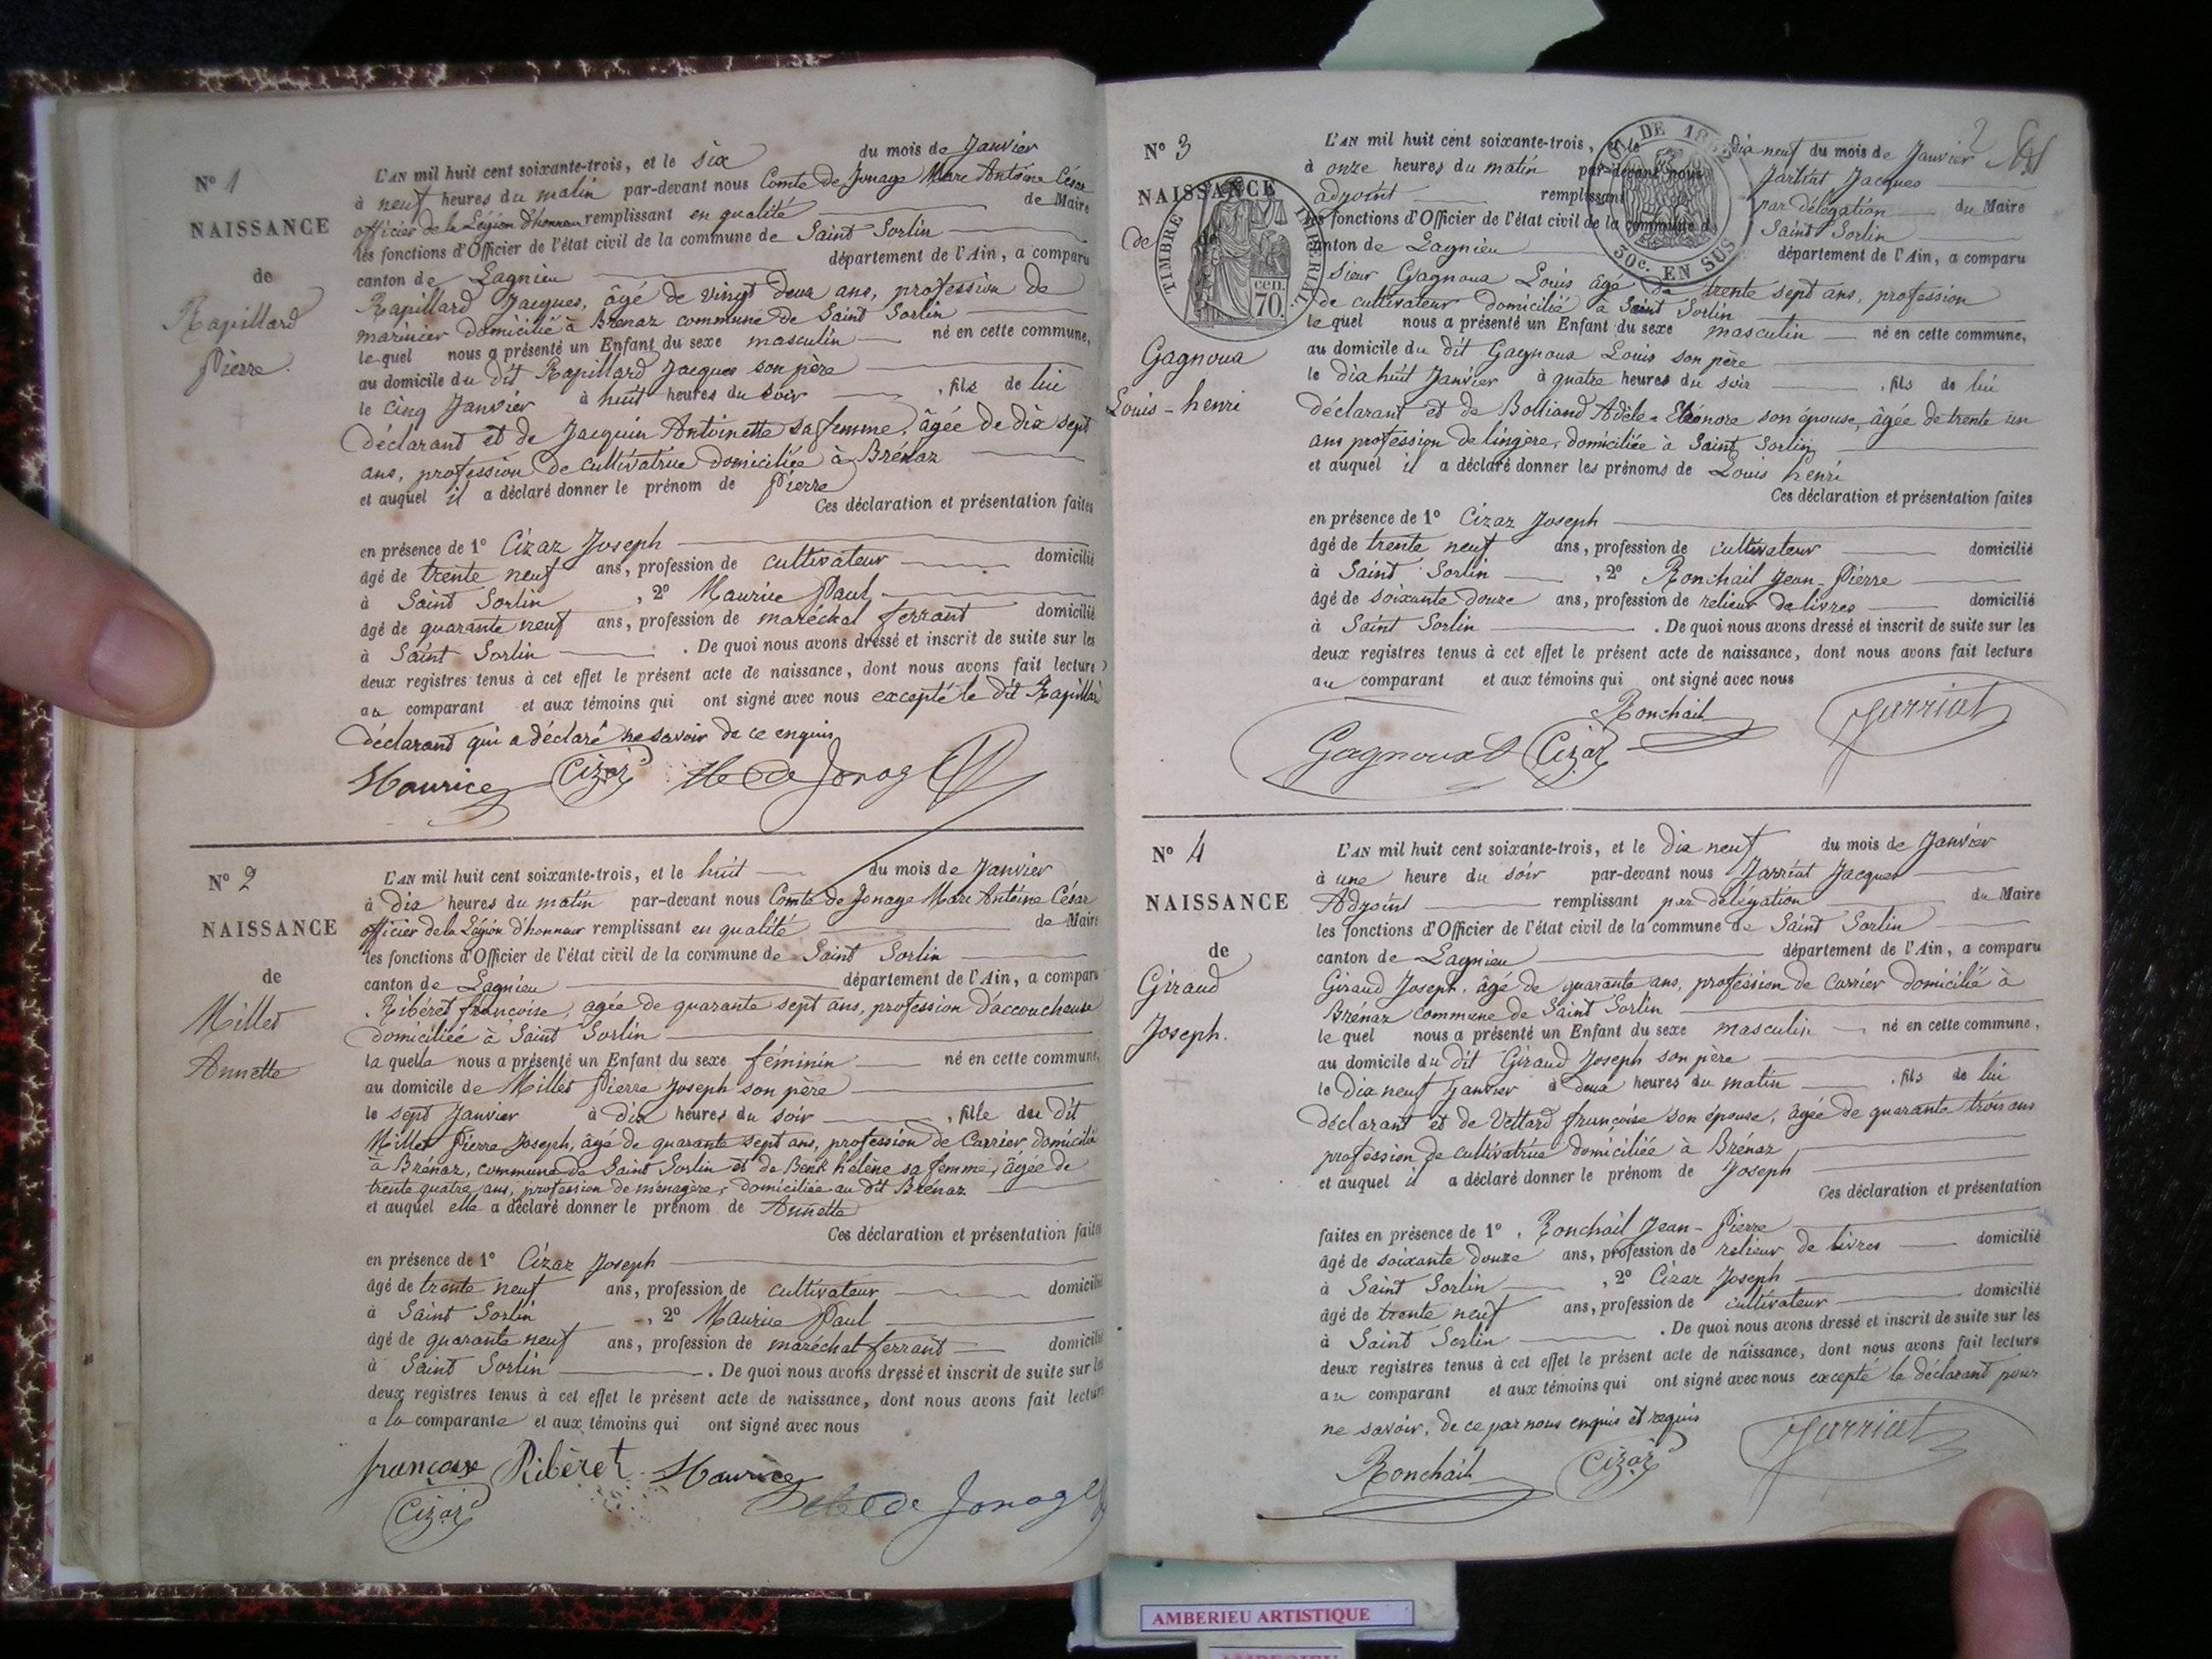 N° 1
NAISSANCE
de
Rapillard
Pierre.
L'AN mil huit cent soixante-trois, et le six du mois de Janvier
à neuf heures du matin par-devant nous Comte de Jonage Marc Antoine César
officier de la Légion d'honneur remplissant en qualité de Maire
les fonctions d'Officier de l'état civil de la commune de Saint Sorlin
canton de Lagnieu département de l'Ain, a comparu
Rapillard Jacques, âgé de vingt deux ans, profession de
marinier domicilié à Brénaz commune de Saint Sorlin
lequel nous a présenté un Enfant du sexe masculin né en cette commune,
au domicile du dit Rapillard Jacques son père
le cinq Janvier à huit heures du soir , fils de lui
déclarant et de Jacquin Antoinette sa femme, âgée de dix sept
ans, profession de cultivatrice domiciliée à Brénaz
et auquel il a déclaré donner le prénom de Pierre
Ces déclaration et présentation faites
en présence de 1° Cizaz Joseph
âgé de trente neuf ans, profession de cultivateur domicilié
à Saint Sorlin , 2° Maurice Paul
âgé de quarante neuf ans, profession de maréchal ferrant domicilié
à Saint Sorlin . De quoi nous avons dressé et inscrit de suite sur les
deux registres tenus à cet effet le présent acte de naissance, dont nous avons fait lecture
au comparant et aux témoins qui ont signé avec nous excepté le dit Rapillard
déclarant qui a déclaré ne savoir de ce enquis
Maurice Cizaz de Jonage
N° 2
NAISSANCE
de
Millet
Annette
L'AN mil huit cent soixante-trois, et le huit du mois de Janvier
à dix heures du matin par-devant nous Comte de Jonage Marc Antoine César
officier de la Légion d'honneur remplissant en qualité de Maire
les fonctions d'Officier de l'état civil de la commune de Saint Sorlin
canton de Lagnieu département de l'Ain, a comparu
Ribéret françoise, agée de quarante sept ans, profession d'accoucheuse
domiciliée à Saint Sorlin
la quelle nous a présenté un Enfant du sexe féminin né en cette commune,
au domicile de Millet Pierre Joseph son père
le sept Janvier à dix heures du soir , fille du dit
Millet Pierre Joseph, âgé de quarante sept ans, profession de Carrier domicilié
à Brénaz, commune de Saint Sorlin et de Benk hélène sa femme, âgée de
trente quatre ans, profession de ménagère, domiciliée au dit Brénaz
et auquel elle a déclaré donner le prénom de Annette
Ces déclaration et présentation faites
en présence de 1° Cizaz Joseph
âgé de trente neuf ans, profession de cultivateur domicilié
à Saint Sorlin , 2° Maurice Paul
âgé de quarante neuf ans, profession de maréchal ferrant domicilié
à Saint Sorlin . De quoi nous avons dressé et inscrit de suite sur les
deux registres tenus à cet effet le présent acte de naissance, dont nous avons fait lecture
a la comparante et aux témoins qui ont signé avec nous
françoise Ribèret Maurice
Cizaz de Jonage
N° 3
NAISSANCE
de
Gagnoux
Louis-henri
TIMBRE IMPERIAL
70 cen.
DE 1862
30c. EN SUS
2
L'AN mil huit cent soixante-trois, et le dix neuf du mois de Janvier
à onze heures du matin par-devant nous Jarriat Jacques
adjoint remplissant par délégation du Maire
les fonctions d'Officier de l'état civil de la commune de Saint Sorlin
canton de Lagnieu département de l'Ain, a comparu
sieur Gagnoux Louis âgé de trente sept ans, profession
de cultivateur domicilié à Saint Sorlin
lequel nous a présenté un Enfant du sexe masculin né en cette commune,
au domicile du dit Gagnoux Louis son père
le dix huit Janvier à quatre heures du soir , fils de lui
déclarant et de Bolliand Adèle-Eléonore son épouse, âgée de trente un
ans profession de lingère, domiciliée à Saint Sorlin
et auquel il a déclaré donner les prénoms de Louis henri
Ces déclaration et présentation faites
en présence de 1° Cizaz Joseph
âgé de trente neuf ans, profession de cultivateur domicilié
à Saint Sorlin , 2° Ronchail Jean-Pierre
âgé de soixante douze ans, profession de relieur de livres domicilié
à Saint Sorlin . De quoi nous avons dressé et inscrit de suite sur les
deux registres tenus à cet effet le présent acte de naissance, dont nous avons fait lecture
au comparant et aux témoins qui ont signé avec nous
Ronchail Jarriat
Gagnoux Cizaz
N° 4
NAISSANCE
de
Giraud
Joseph.
L'AN mil huit cent soixante-trois, et le dix neuf du mois de Janvier
à une heure du soir par-devant nous Jarriat Jacques
Adjoint remplissant par délégation du Maire
les fonctions d'Officier de l'état civil de la commune de Saint Sorlin
canton de Lagnieu département de l'Ain, a comparu
Giraud Joseph, âgé de quarante ans, profession de Carrier domicilié à
Brénaz commune de Saint Sorlin
lequel nous a présenté un Enfant du sexe masculin né en cette commune,
au domicile du dit Giraud Joseph son père
le dix neuf Janvier à deux heures du matin , fils de lui
déclarant et de Vettard françoise son épouse, âgée de quarante trois ans
profession de cultivatrice domiciliée à Brénaz
et auquel il a déclaré donner le prénom de Joseph
Ces déclaration et présentation
faites en présence de 1° Ronchail Jean-Pierre
âgé de soixante douze ans, profession de relieur de livres domicilié
à Saint Sorlin , 2° Cizaz Joseph
âgé de trente neuf ans, profession de cultivateur domicilié
à Saint Sorlin . De quoi nous avons dressé et inscrit de suite sur les
deux registres tenus à cet effet le présent acte de naissance, dont nous avons fait lecture
au comparant et aux témoins qui ont signé avec nous excepté le déclarant pour
ne savoir, de ce par nous enquis et requis
Ronchail Cizaz Jarriat
AMBERIEU ARTISTIQUE
AMBERIEU